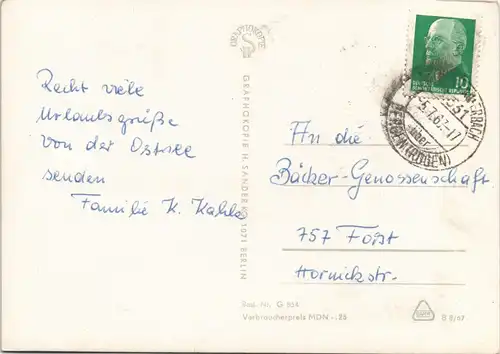 GRAPHOKOPIE
Recht viele
Urlaubsgrüße
von der Ostsee
senden
Familie K. Kahle
GRAPHOKOPIE H. SANDER KG 1071 BERLIN
10
DEUTSCHE
DEMOKRATISCHE REPUBLIK
51
-5.7.67-17
über
BERGEN (RÜGEN)
An die
Bäcker-Genossenschaft
757 Forst
Hornickstr.
Best.-Nr. G 858
Verbraucherpreis MDN -,25
B 8/67